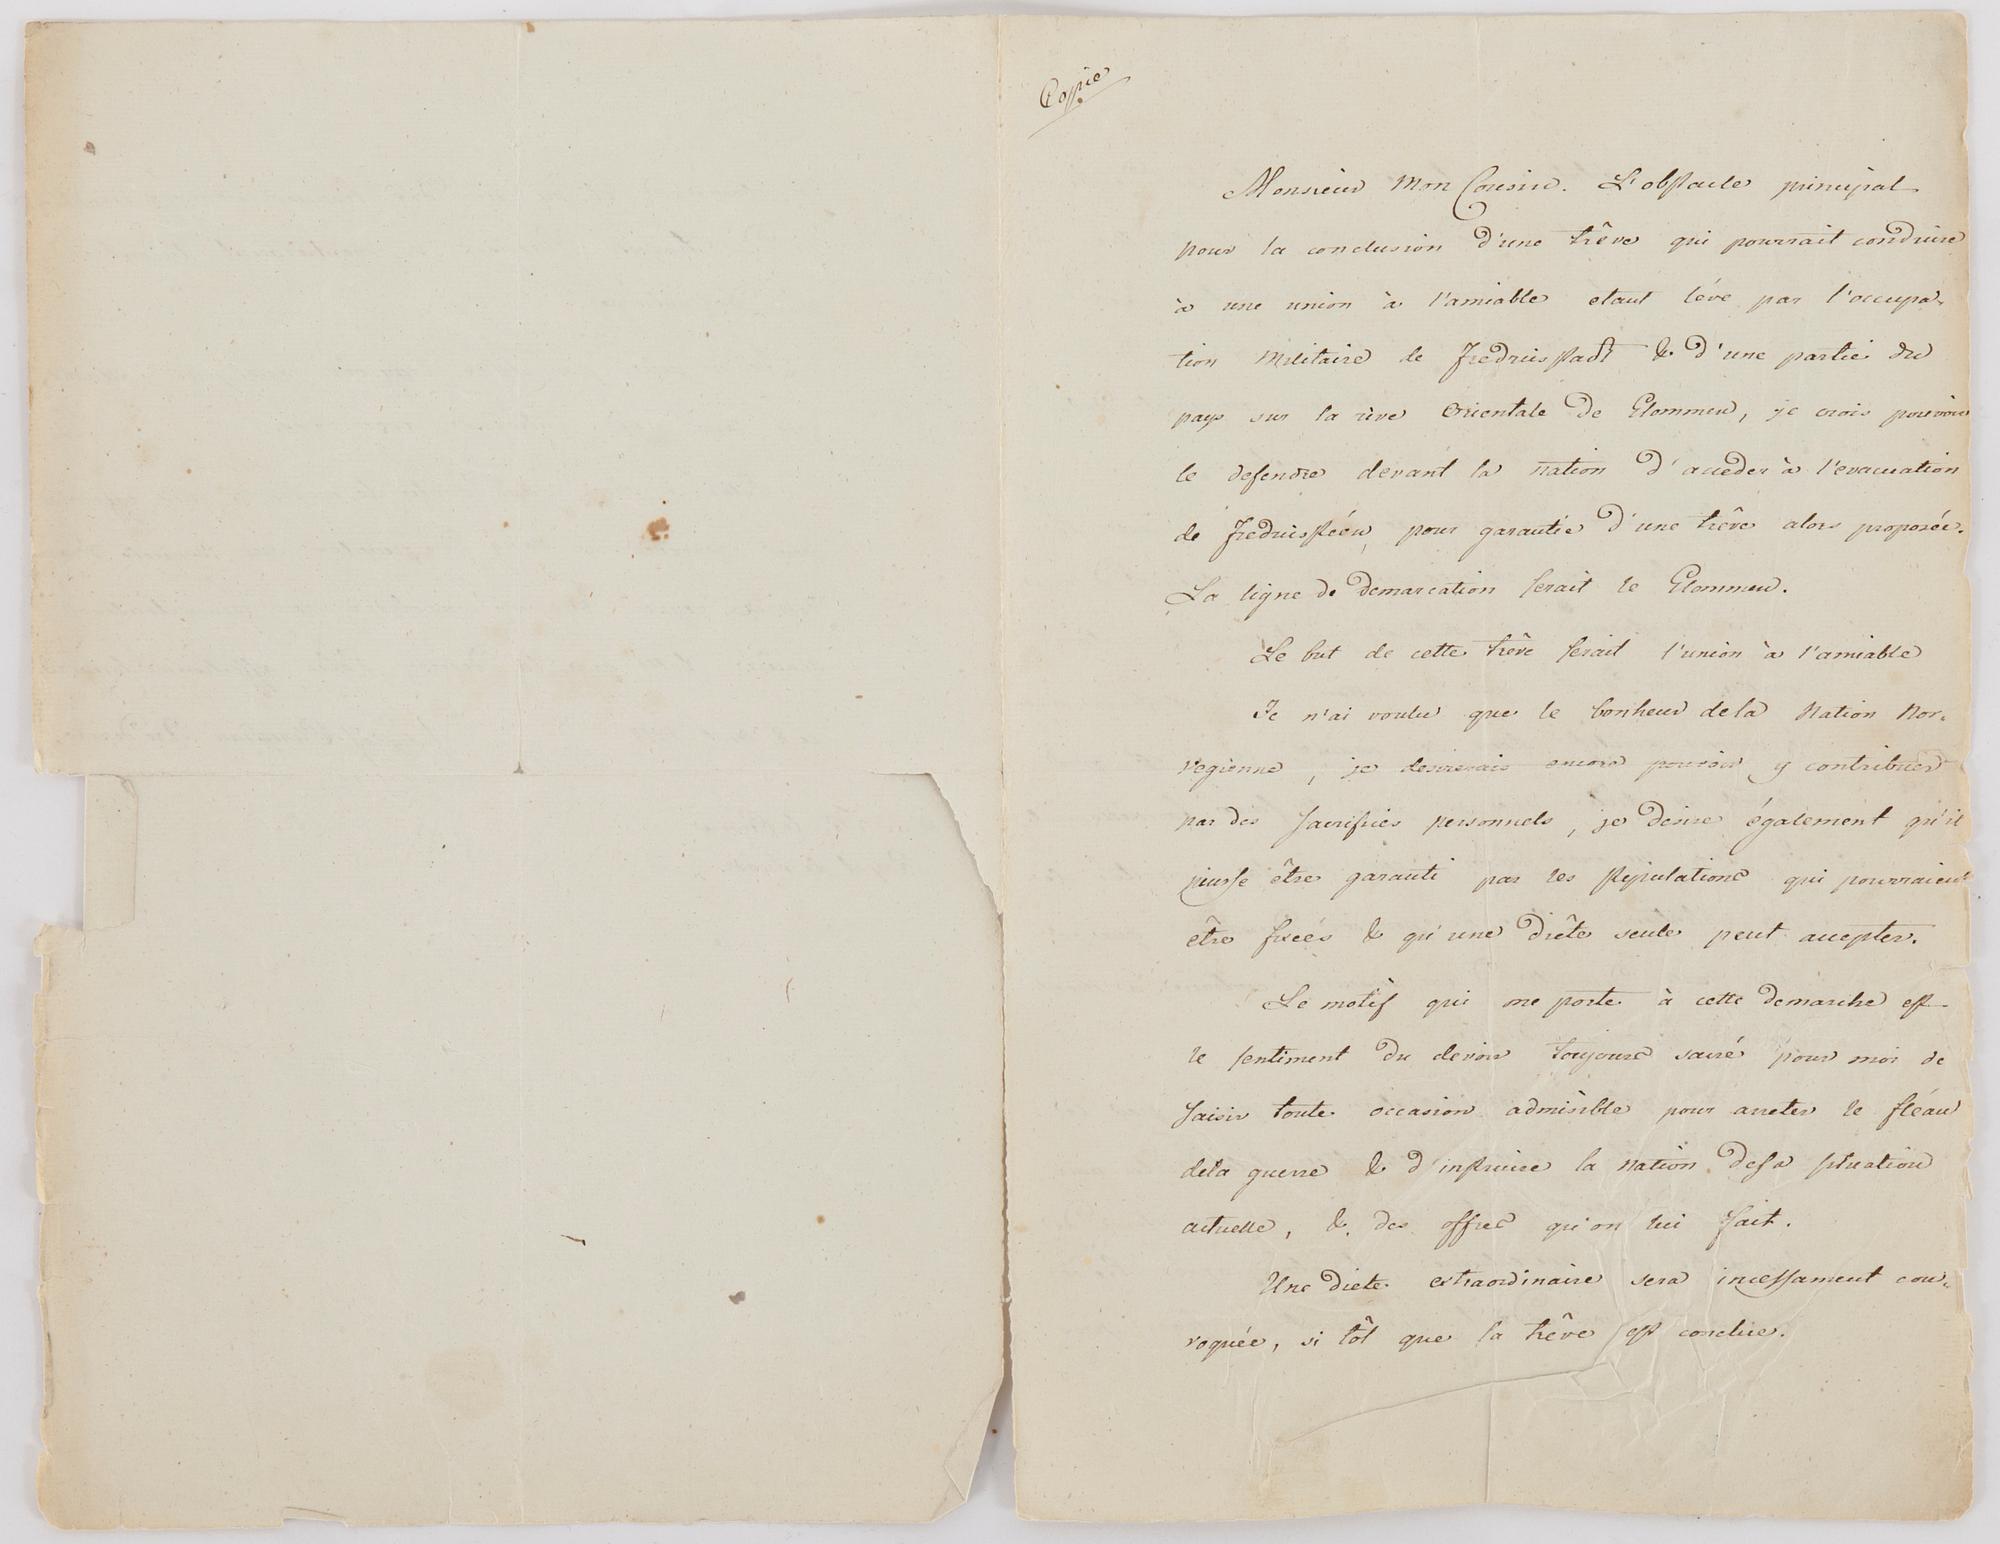 Copie
Monsieur Mon Cousin. L'obstacle principal
pour la conclusion d'une trêve qui pourrait conduire
à une union à l'amiable etant levé par l'occupa-
tion Militaire de Fredricsstadt & d'une partie du
pays sur la rive Orientale de Glommen, je crois pouvoir
le defendre devant la nation d'acceder à l'evacuation
de Fredricstéen, pour garantie d'une trêve alors proposée.
La ligne de demarcation serait le Glommen.
Le but de cette trêve serait l'union à l'amiable
Je n'ai voulu que le bonheur de la Nation Nor-
vegienne, je desirerais encore pouvoir y contribuer
par des sacrifices personnels, je desire également qu'il
puisse être garanti par les stipulations qui pourraient
être fixées & qu'une Diête seule peut accepter.
Le motif qui me porte à cette demarche est
le sentiment du devoir toujours sacré pour moi de
saisir toute occasion admisible pour arreter le fléau
de la guerre & d'instruire la nation de sa situation
actuelle, & des offres qu'on lui fait.
Une Diete extraordinaire sera incessament con-
voquée, si tôt que la trêve est conclue.